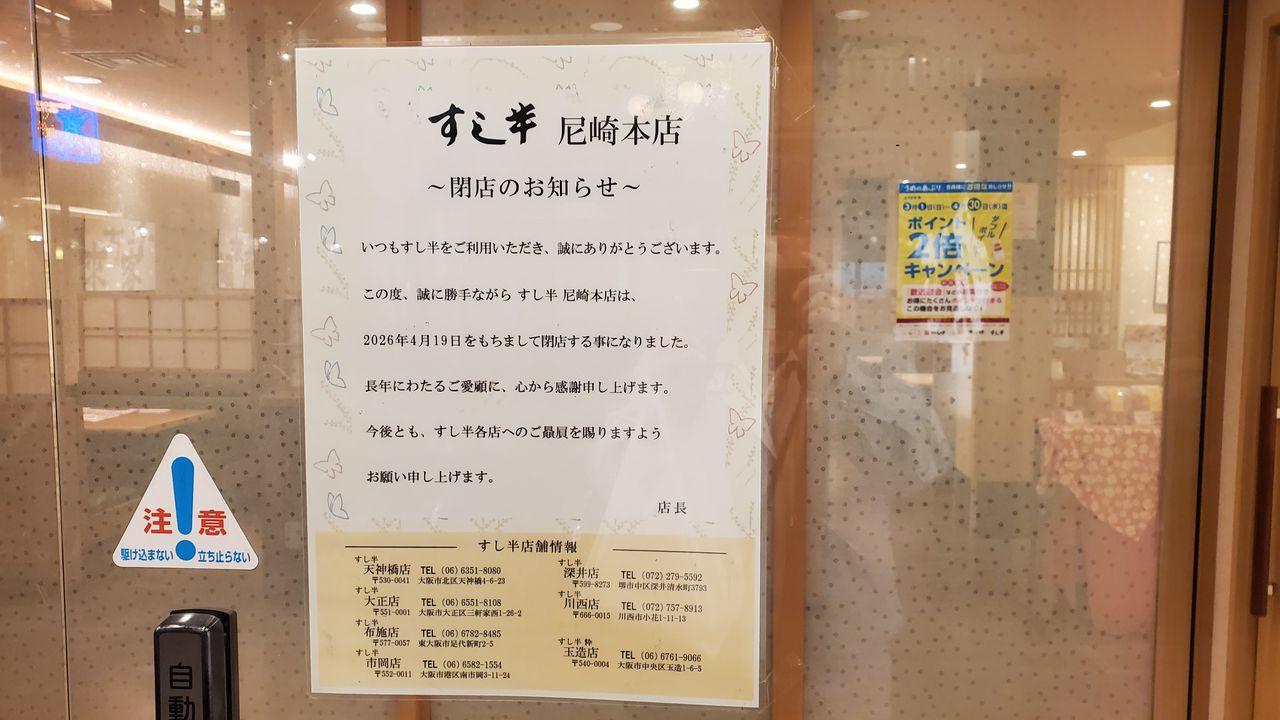 すし半 尼崎本店
～閉店のお知らせ～
いつもすし半をご利用いただき、誠にありがとうございます。
この度、誠に勝手ながら すし半 尼崎本店は、
2026年4月19日をもちまして閉店する事になりました。
長年にわたるご愛顧に、心から感謝申し上げます。
今後とも、すし半各店へのご贔屓を賜りますよう
お願い申し上げます。
店長
すし半店舗情報
すし半
天神橋店 TEL (06) 6351-8080
〒530-0041 大阪市北区天神橋4-6-23
すし半
大正店 TEL (06) 6551-8108
〒551-0001 大阪市大正区三軒家西1-26-2
すし半
布施店 TEL (06) 6782-8485
〒577-0057 東大阪市足代新町2-5
すし半
市岡店 TEL (06) 6582-1554
〒552-0011 大阪市港区南市岡3-11-24
すし半
深井店 TEL (072) 279-5592
〒599-8273 堺市中区深井清水町3793
すし半
川西店 TEL (072) 757-8913
〒666-0015 川西市小花1-11-13
すし半 粋
玉造店 TEL (06) 6761-9066
〒540-0004 大阪市中央区玉造1-6-5
注意
駆け込まない 立ち止らない
自動
3月1日(日)～4月30日(木)
ポイント
2倍
キャンペーン
ダブル
ポイ
お得にたくさん
この機会をお見逃しなく!
すし半